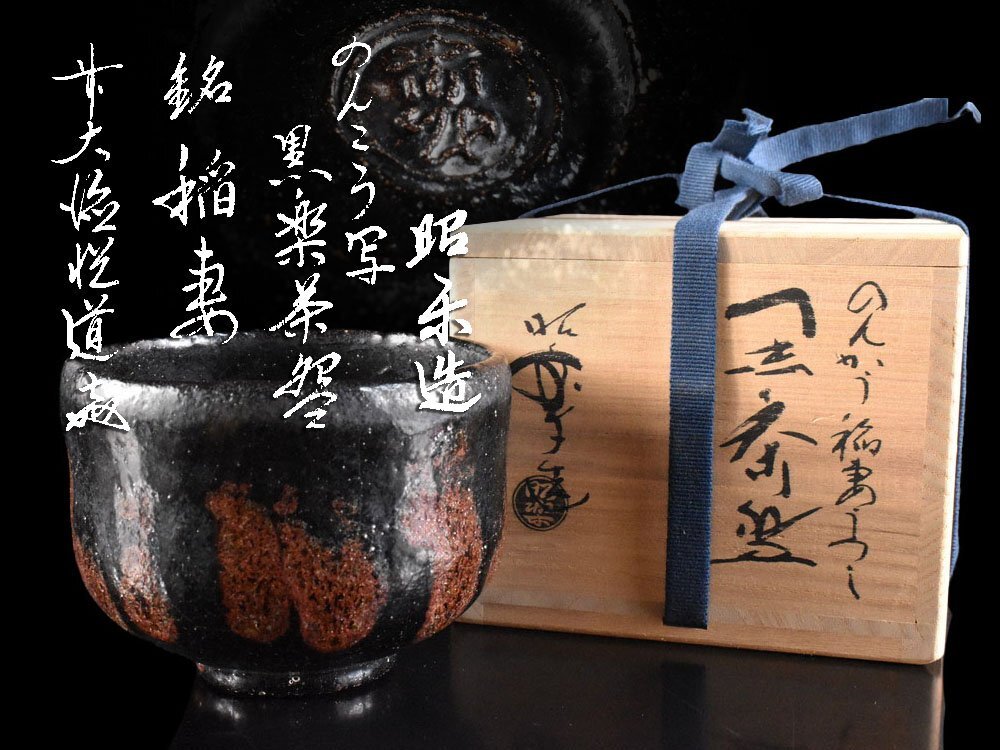 昭楽造
のんこう写
黒楽茶碗
銘 稲妻
大徳悦道
のんかう 稲妻うつし
黒茶碗
昭楽造
昭楽